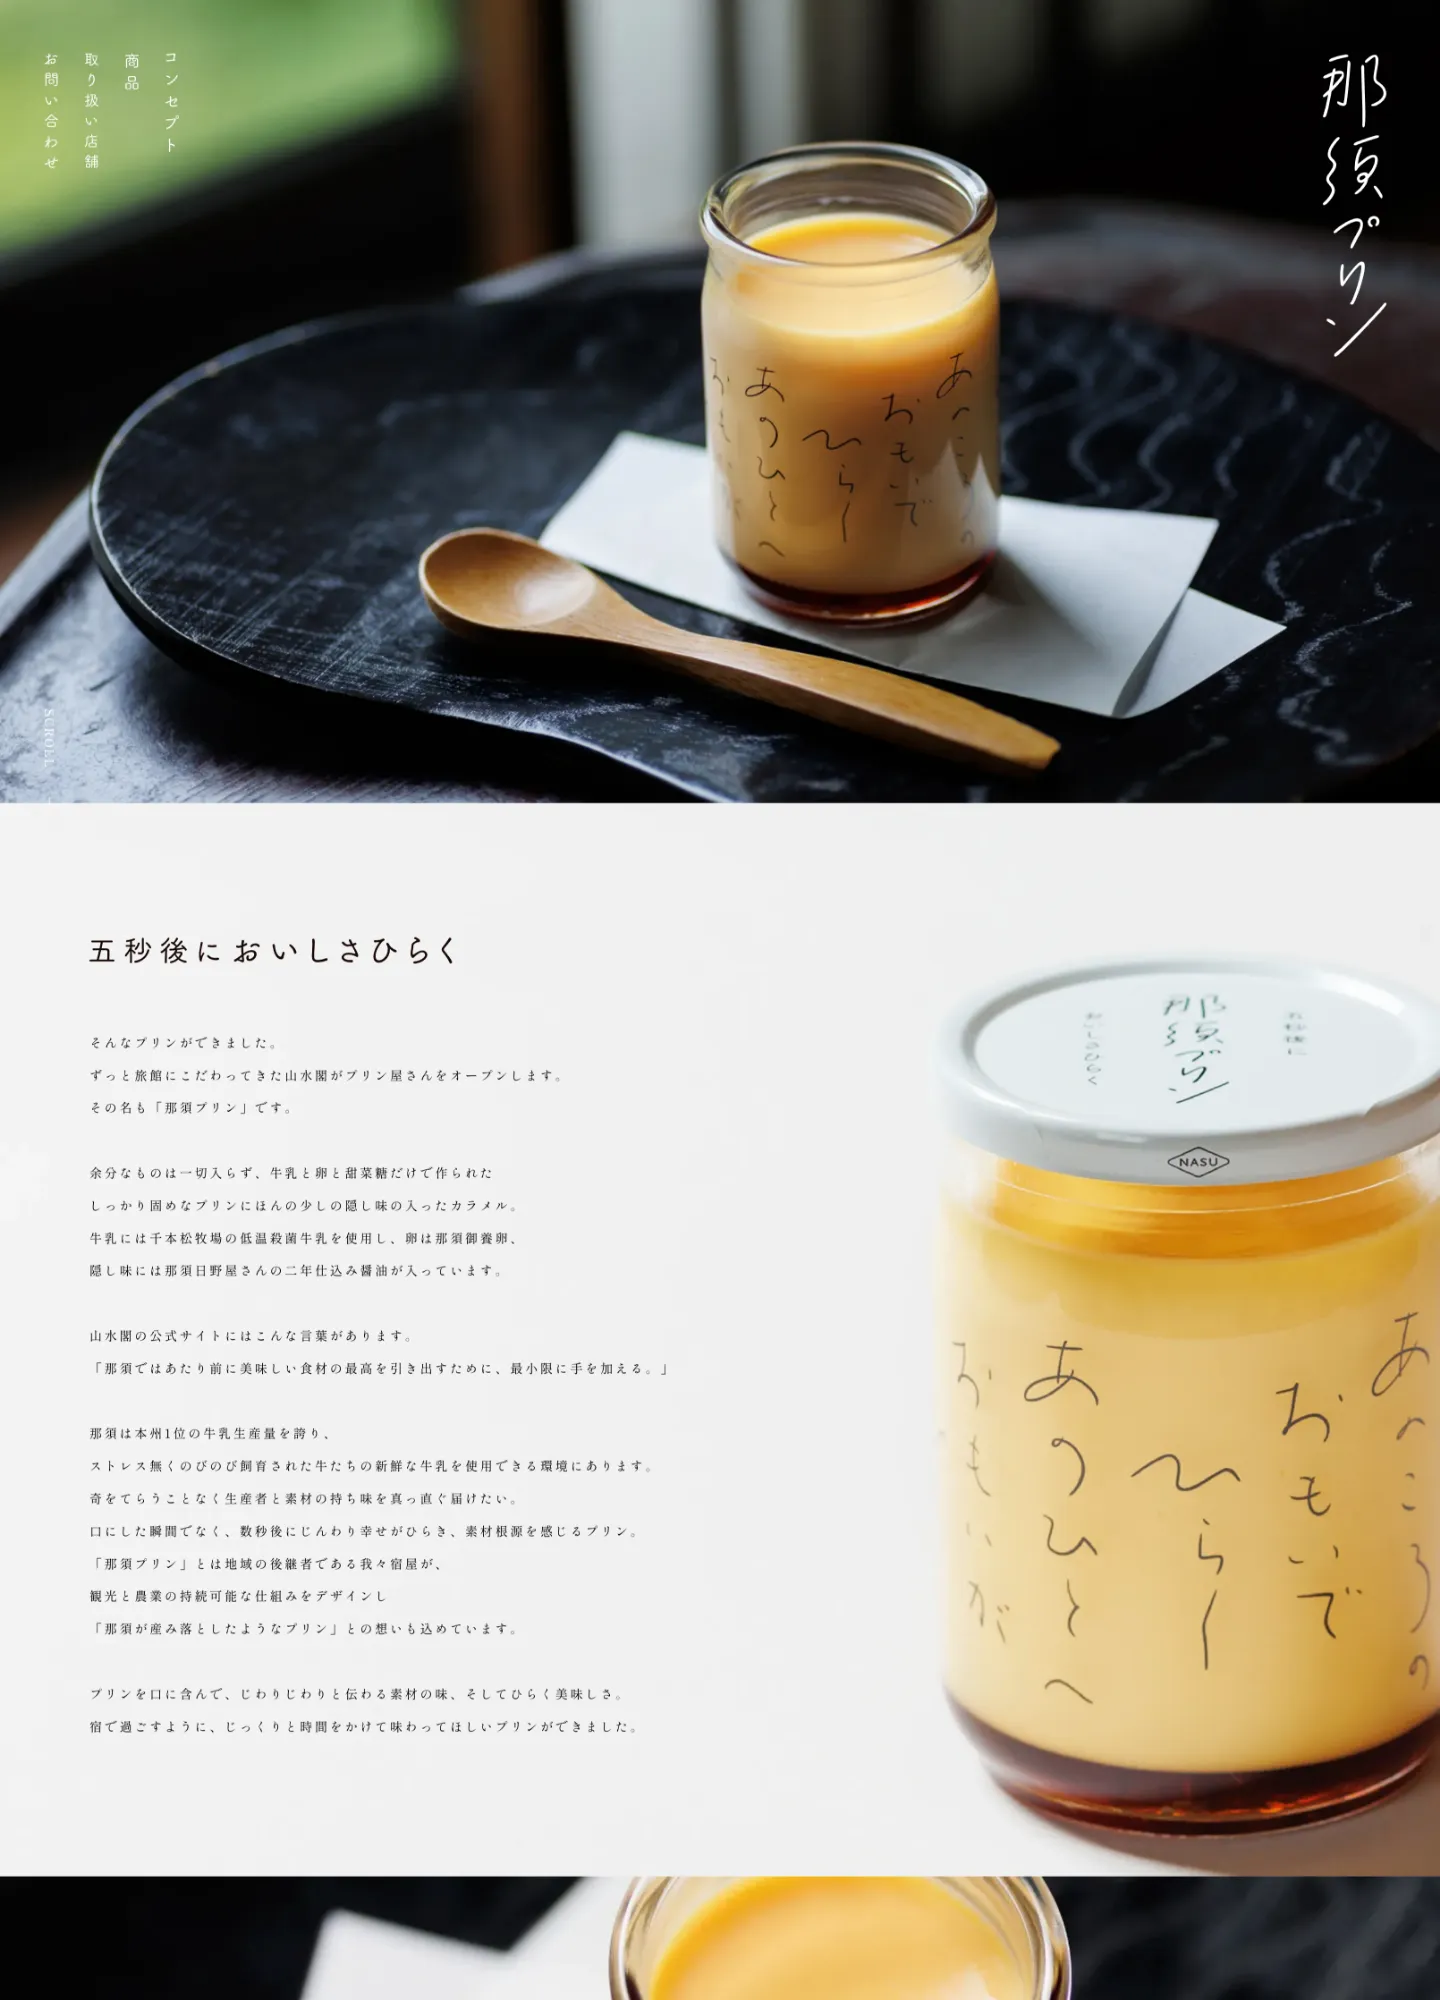 那須プリン
コンセプト
商品
取り扱い店舗
お問い合わせ
あのひとへ
ひらく
おもいで
SCROLL
五秒後においしさひらく
そんなプリンができました。
ずっと旅館にこだわってきた山水閣がプリン屋さんをオープンします。
その名も「那須プリン」です。
余分なものは一切入らず、牛乳と卵と甜菜糖だけで作られた
しっかり固めなプリンにほんの少しの隠し味の入ったカラメル。
牛乳には千本松牧場の低温殺菌牛乳を使用し、卵は那須御養卵、
隠し味には那須日野屋さんの二年仕込み醤油が入っています。
山水閣の公式サイトにはこんな言葉があります。
「那須ではあたり前に美味しい食材の最高を引き出すために、最小限に手を加える。」
那須は本州1位の牛乳生産量を誇り、
ストレス無くのびのび飼育された牛たちの新鮮な牛乳を使用できる環境にあります。
奇をてらうことなく生産者と素材の持ち味を真っ直ぐ届けたい。
口にした瞬間でなく、数秒後にじんわり幸せがひらき、素材根源を感じるプリン。
「那須プリン」とは地域の後継者である我々宿屋が、
観光と農業の持続可能な仕組みをデザインし
「那須が産み落としたようなプリン」との想いも込めています。
プリンを口に含んで、じわりじわりと伝わる素材の味、そしてひらく美味しさ。
宿で過ごすように、じっくりと時間をかけて味わってほしいプリンができました。
五秒後に
那須プリン
おいしさひらく
NASU
あのころの
おもいで
ひらく
あのひとへ
おもいが